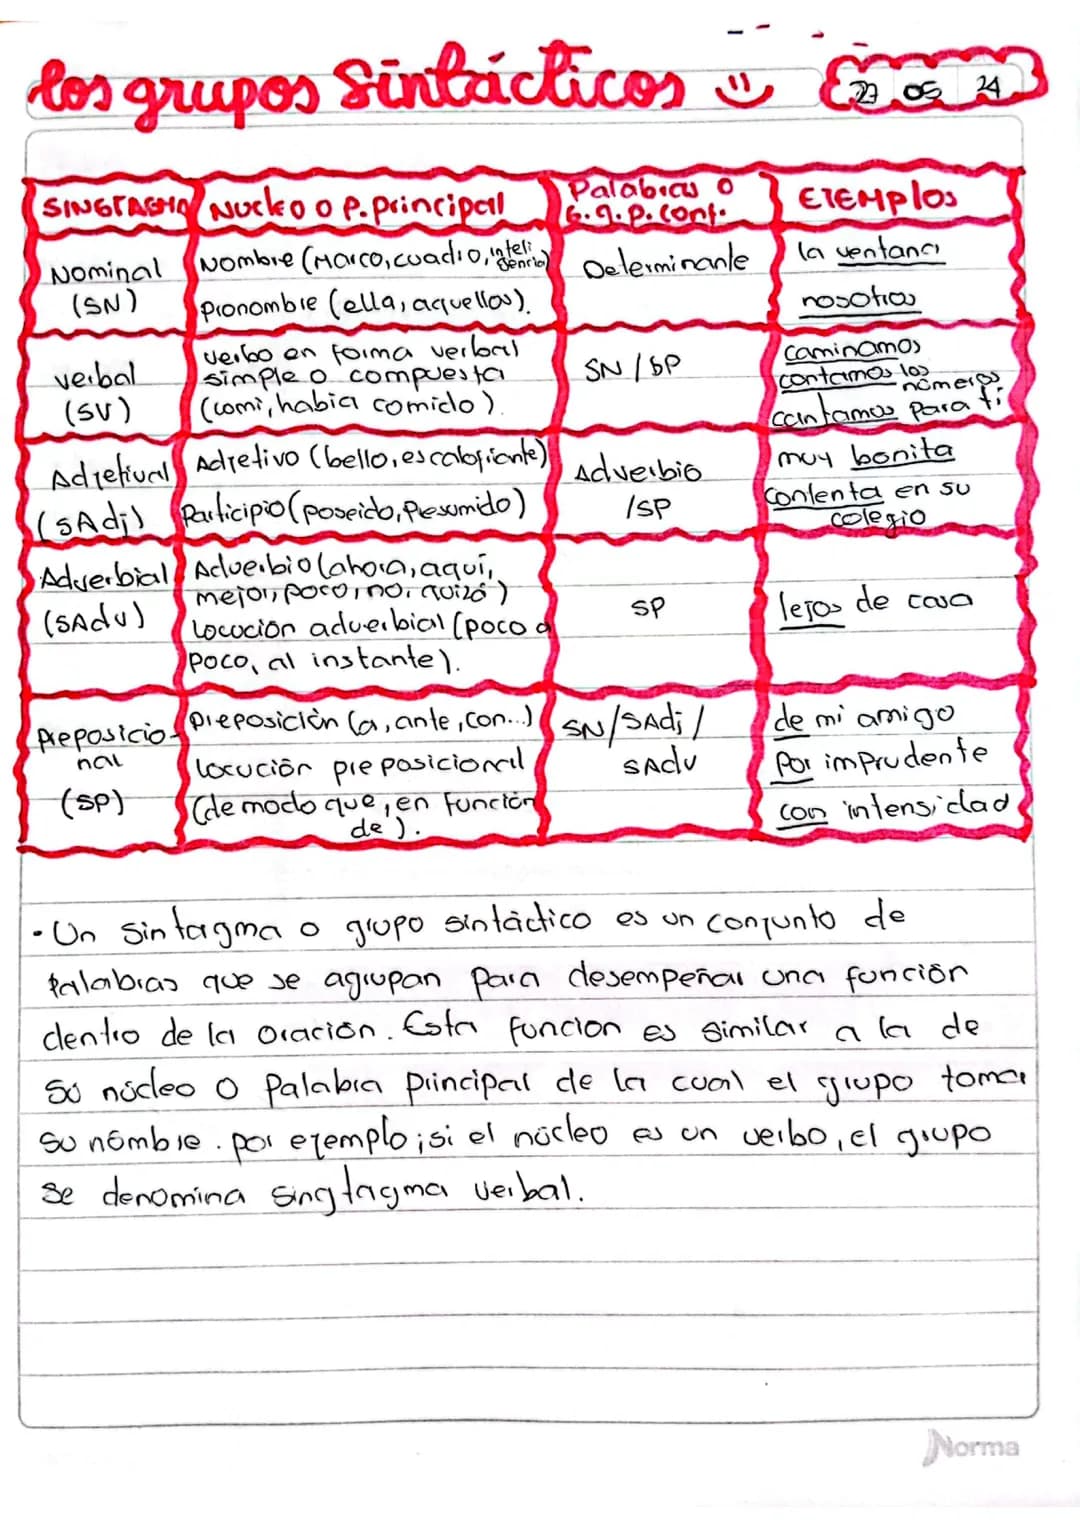 los grupos Sintácticos
27 05 24
SINGTAGMA
Nucleo o P.principal
Palabras o
G.q.p.conf.
EJEMPlos
Nominal
(SN)
Nombre (Marco, cuadro, inteligencia)
pronombre (ella, aquellos).
Determinante
la ventana
nosotros
verbal
(SV)
verbo en forma verbal
simple o compuesta
(comi, habia comido).
SN / SP
caminamos
contamos los
números
cantamos para ti
Adjetival
(SAdj)
Adjetivo (bello, escalofriante)
Participio (poseido, Presumido)
Adverbio
/SP
muy bonita
contenta en su
colegio
Adverbial
(SAdv)
Adverbio (ahora, aquí,
mejor, poco, no, quizá)
Locución adverbial (poco a
poco, al instante).
SP
lejos de casa
preposicio-
nal
(SP)
preposición (a, ante, con...)
locución preposicional
(de modo que, en función
de).
SN/SAdj/
SAdv
de mi amigo
Por imprudente
con intensidad
• Un sintagma o grupo sintáctico es un conjunto de
palabras que se agrupan para desempeñar una función
dentro de la oración. Esta función es similar a la de
Su núcleo o Palabra principal de la cual el grupo toma
Su nombre. por ejemplo; si el núcleo es un verbo, el grupo
se denomina singtagma verbal.
Norma